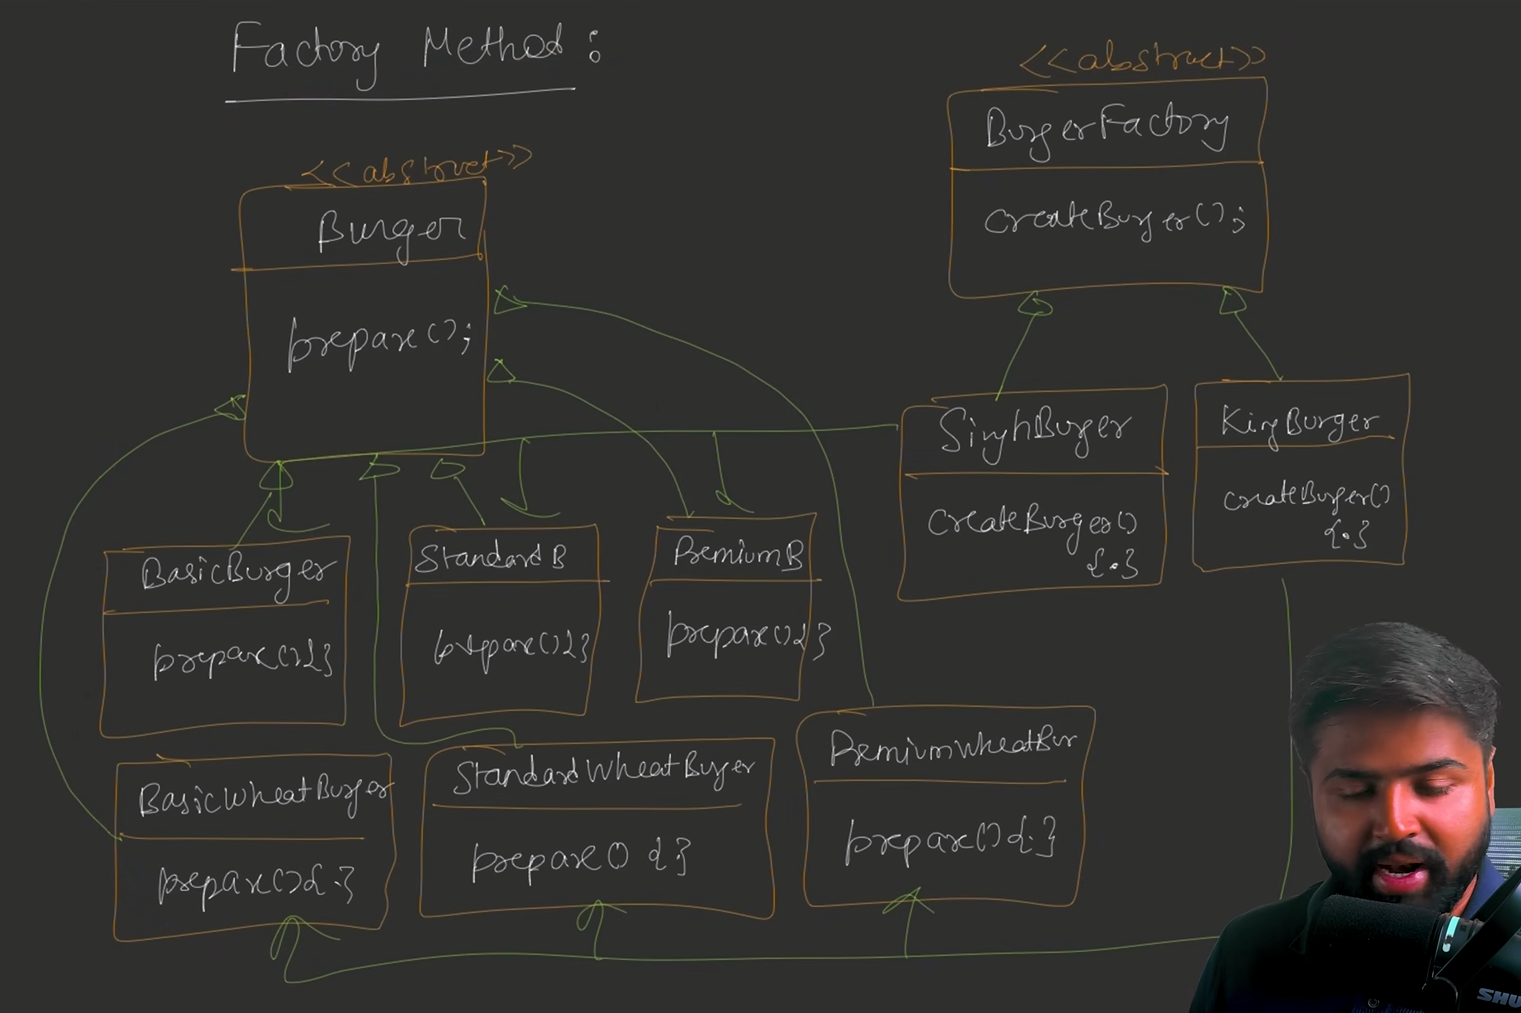 Factory Method:
<<abstract>>
BurgerFactory
createBurger();
<<abstract>>
Burger
prepare();
SinghBurger
createBurger()
{.}
KingBurger
createBurger()
{.}
BasicBurger
prepare(){}
StandardB
prepare(){}
PremiumB
prepare(){}
BasicWheatBurger
prepare(){.}
StandardWheatBurger
prepare() {}
PremiumWheatBur
prepare(){.}
SHU